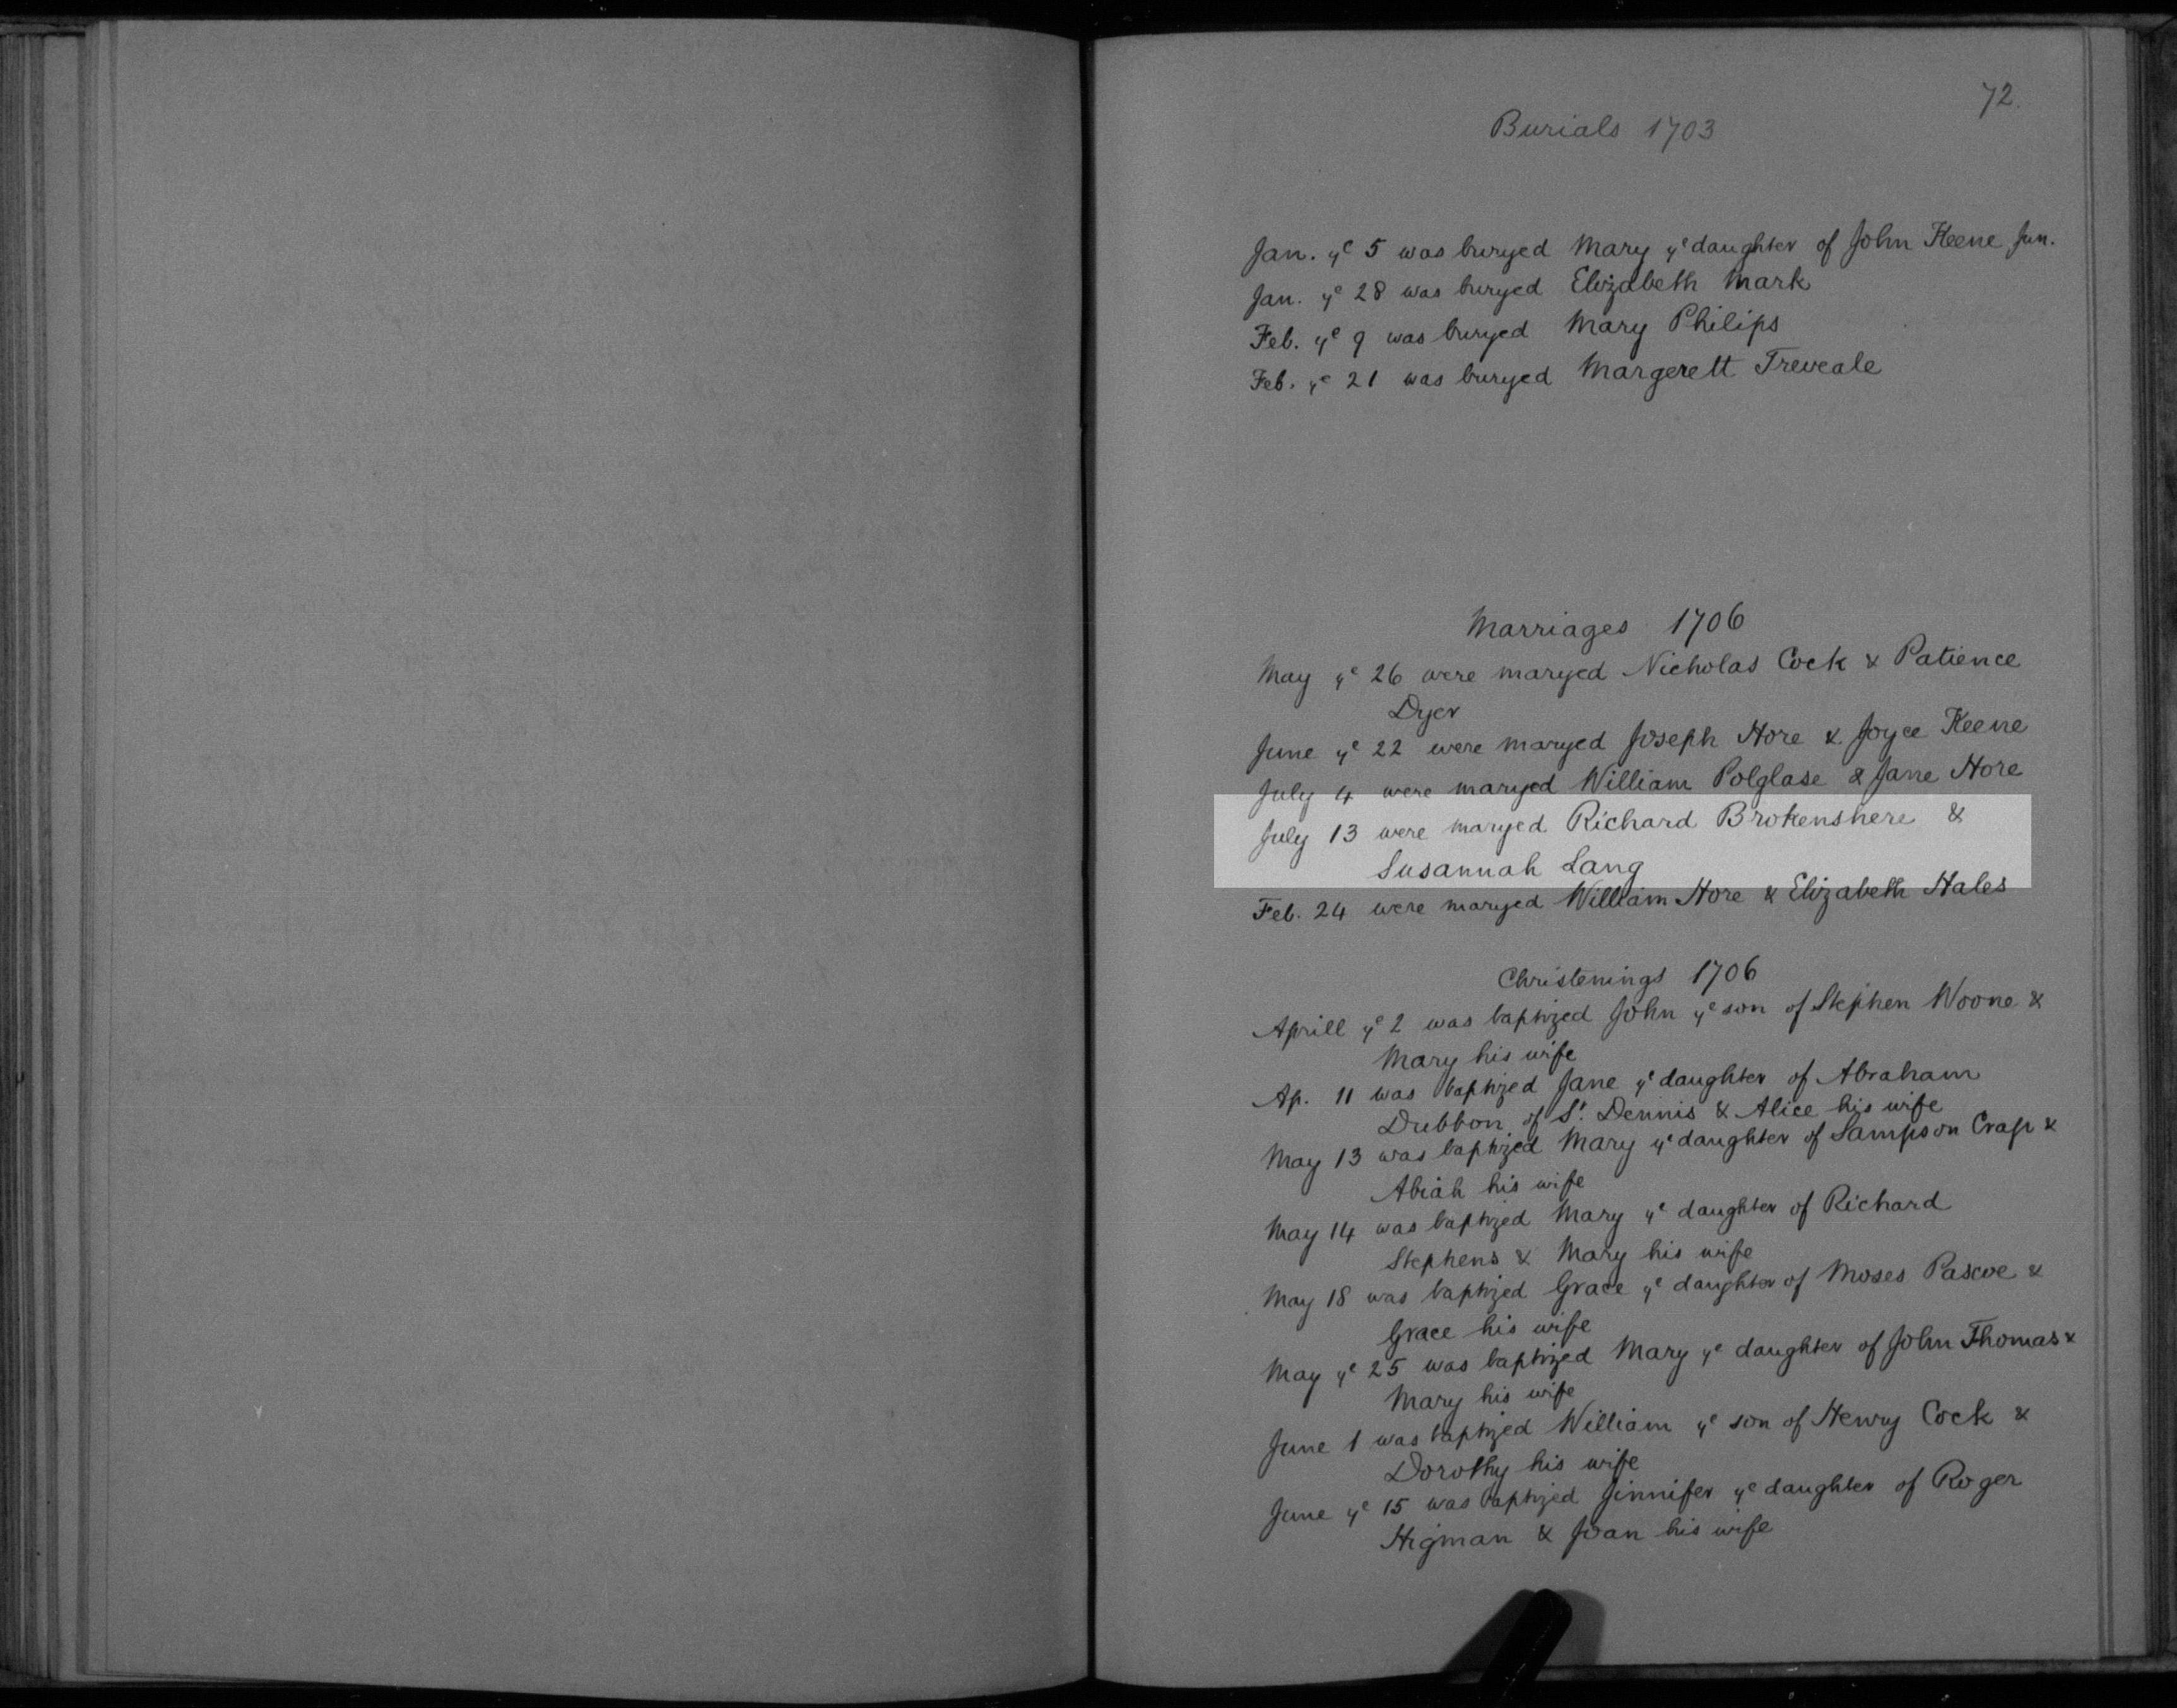 72.
Burials 1703
Jan. ye 5 was buryed Mary ye daughter of John Keene Jun.
Jan. ye 28 was buryed Elizabeth Mark
Feb. ye 9 was buryed Mary Philips
Feb. ye 21 was buryed Margerett Treveale
Marriages 1706
May ye 26 were maryed Nicholas Cock & Patience
Dyer
June ye 22 were maryed Joseph Hore & Joyce Keene
July 4 were maryed William Polglase & Jane Hore
July 13 were maryed Richard Brokenshere &
Susannah Lang
Feb. 24 were maryed William Hore & Elizabeth Hales
Christenings 1706
Aprill ye 2 was baptized John ye son of Stephen Woone &
Mary his wife
Ap. 11 was baptized Jane ye daughter of Abraham
Dubbon of St. Dennis & Alice his wife
May 13 was baptized Mary ye daughter of Sampson Crap &
Abiah his wife
May 14 was baptized Mary ye daughter of Richard
Stephens & Mary his wife
May 18 was baptized Grace ye daughter of Moses Pascoe &
Grace his wife
May ye 25 was baptized Mary ye daughter of John Thomas &
Mary his wife
June 1 was baptized William ye son of Henry Cock &
Dorothy his wife
June ye 15 was baptized Jinnifer ye daughter of Roger
Higman & Joan his wife